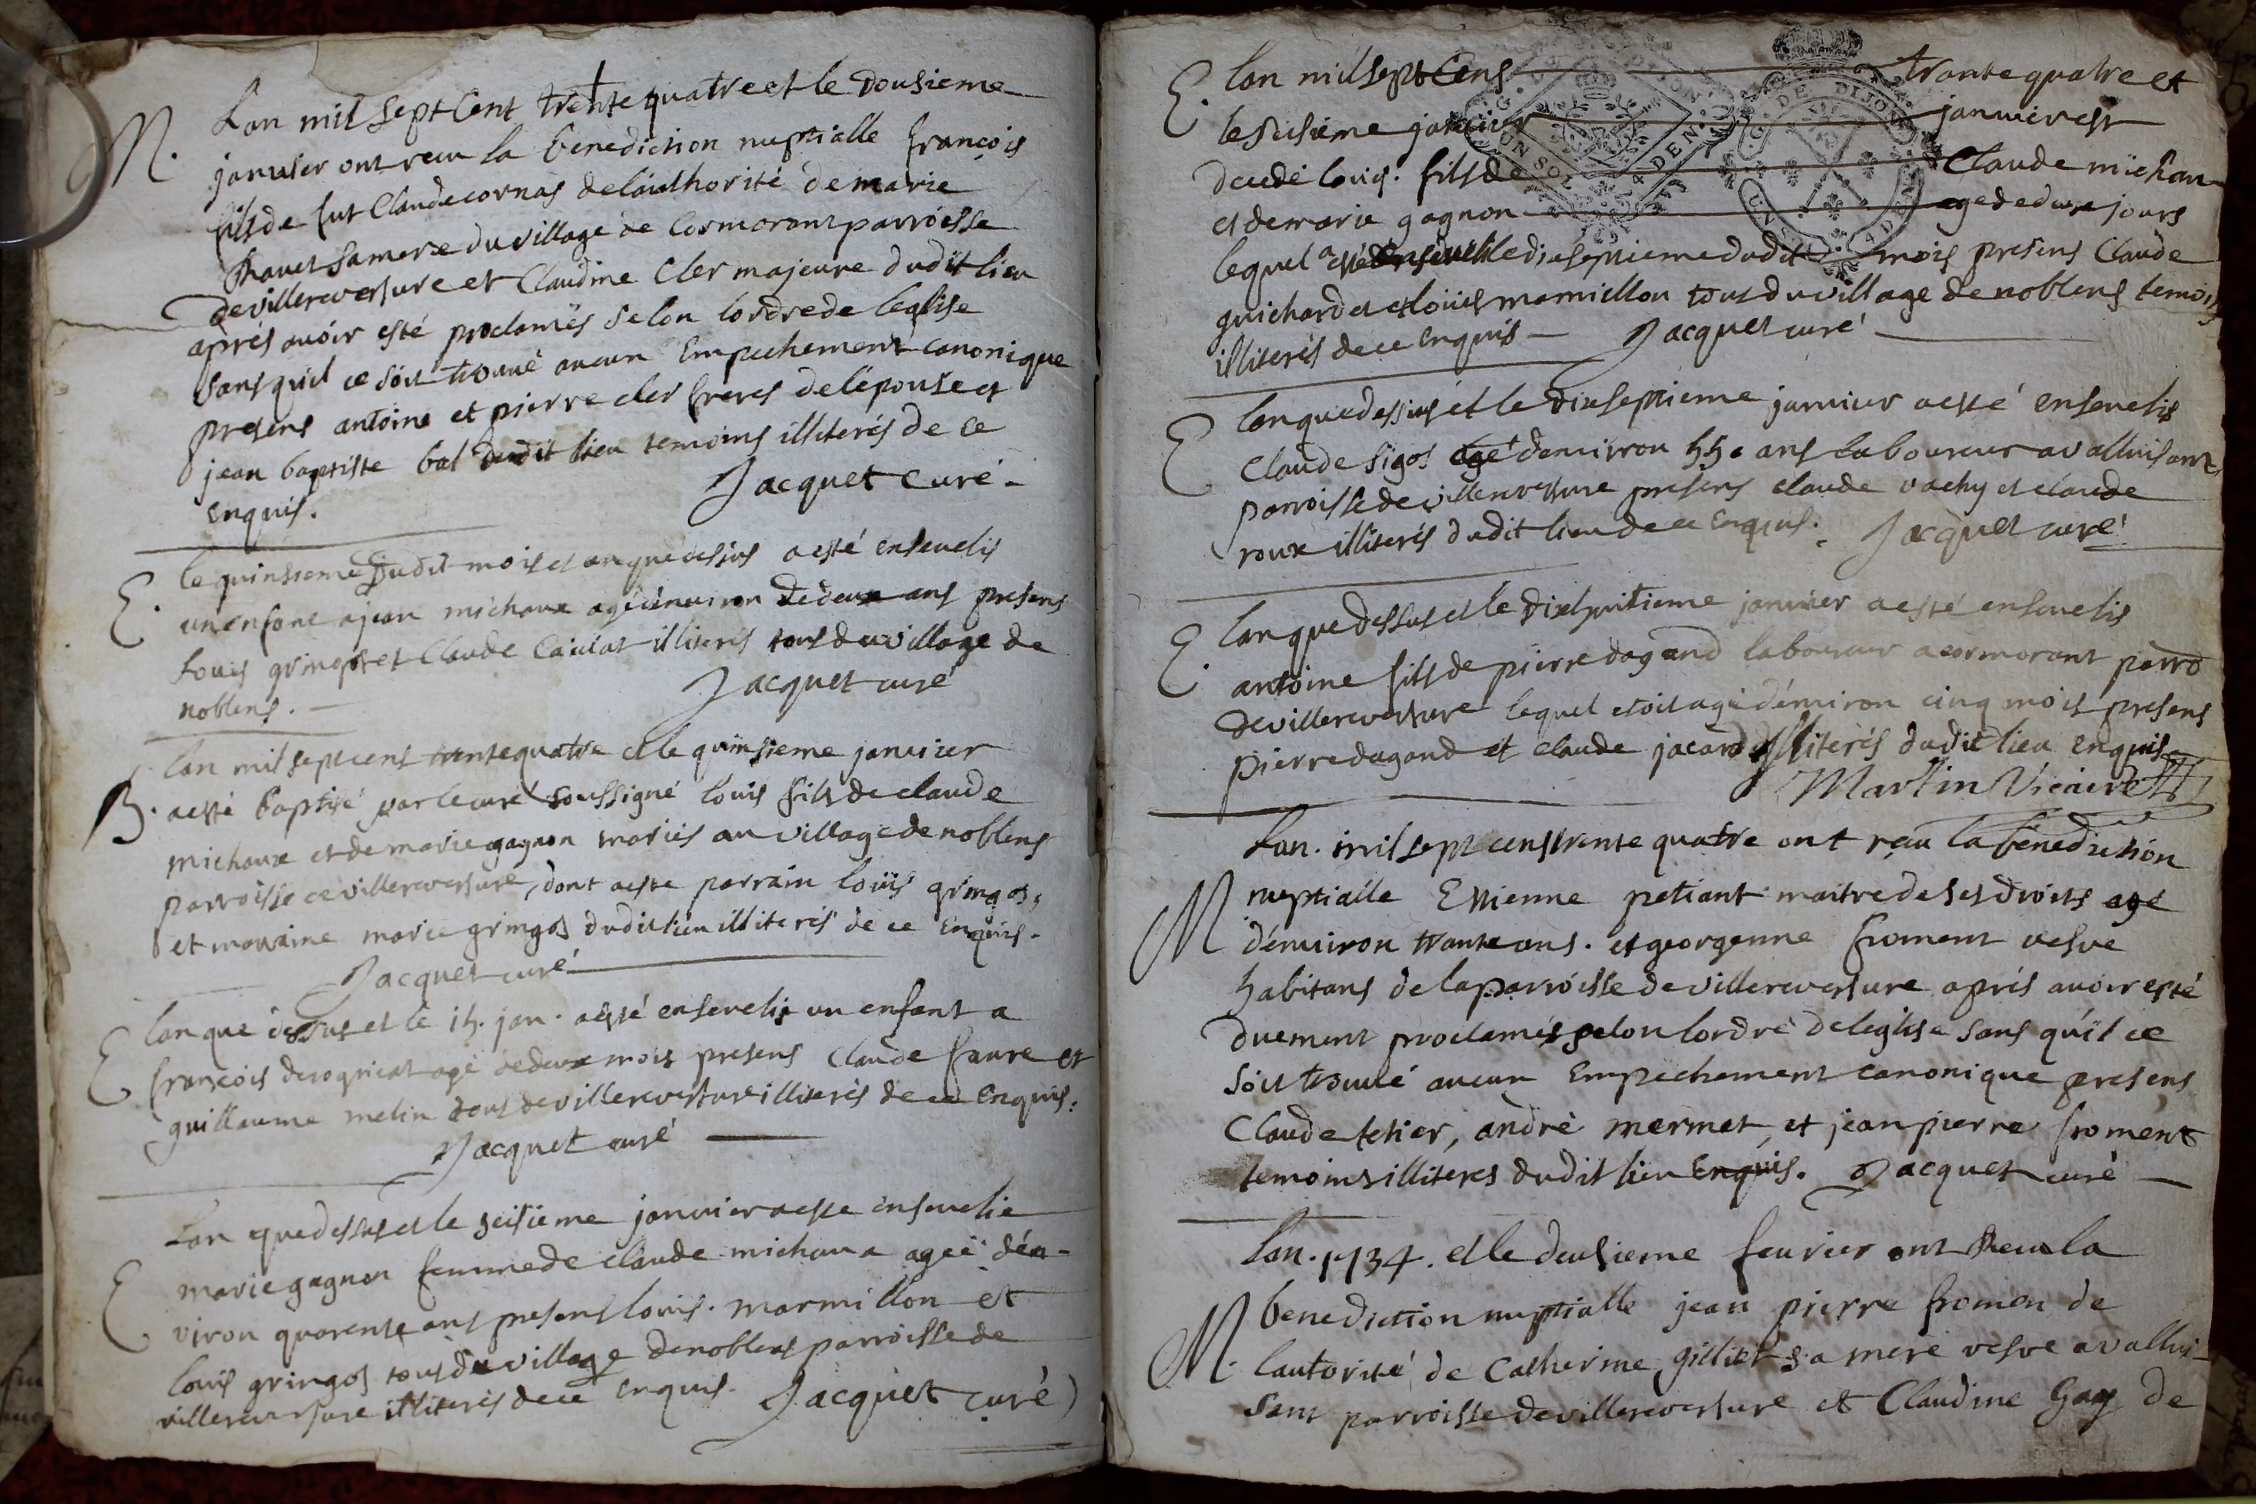 Lan mil sept Cent trente quatre et le Dousieme
M. januier ont receu la benediction nuptialle françois
fils de fut Claude cornas de láuthorité de marie
sa mere du village de Cormorant parroisse
de villereversure et Claudine Cler majeure dudit lieu
aprés auóir esté proclamés selon lordre de leglise
sans quil ce sóit trouué aucun Empechement canonique
presens antoine et pierre cler freres de lépouse et
jean baptiste bal dudit lieu temoins illiterés de ce
enquis. Jacquet Curé
E. le quinsieme dudit mois et an que dessus a esté enseuelis
un enfant a jean michaux agé denuiron de deux ans presens
Louis gringoz et Claude illiterés tous du village de
noblens. Jacquet curé
lan mil sept cens trente quatre et le quinsieme janvier
B. a esté baptisé par le curé soussigné louis fils de claude
michaux et de marie gagnon mariés au village de noblens
parroisse de villereversure, dont a este parrain louis gringos,
et maraine marie gringos dudit lieu illiterés de ce Enquis.
Jacquet curé
E lan que dessus et le 15. jan. a esté enseuelis un enfant a
françois agé de deux mois presens Claude faure et
guillaume melin tous de villereversure illiterés de ce Enquis.
Jacquet curé
Lan que dessus et le seisieme janvier a este enseuelie
E marie gagnon femme de claude michaux ageé dén-
viron quarente ans presens louis. marmillon et
louis gringos tous du village de noblens parroisse de
villereversure illiterés de ce enquis. Jacquet curé
E. lan mil sept Cens trante quatre et
le seisieme janvier janvier est
decedé louis. fils de Claude michau
et de marie gagnon agé de deux jours
lequel a esté enseueli le dixseptieme dudit mois presens Claude
guichard et loüis mamillon tous du village de noblens temoins
illiterés de ce enquis Jacquet curé
E lan que dessus et le dixseptieme janvier a esté enseuelis
Claude sigos agé denviron 55. ans laboureur a valluisant
parroisse de villereversure presens claude vachy et claude
roux illiterés dudit lieu de ce enquis. Jacquet curé
E. lan que dessus et le dixhuitieme janvier a esté enseuelis
antoine fils de pierre dagand laboureur a cormorant parro
de villereversure lequel etoit agé dénviron cinq mois presens
pierre dagand et claude jacard illiterés dudit lieu enquis
Martin Vicaire
Lan. mil sept cens trente quatre ont reçu la bénediction
M nuptialle Etienne petiant maitre de ses droits agé
dénuiron trante ans. et georgenne froment vesve
habitans de la parróisse de villereversure aprés auoir esté
duement proclamés selon lordre de leglise sans quïl ce
sóit trouué aucun Empechement canonique presens
Claude tetier, andré mermet, et jean pierre froment
temoins illiteres dudit lieu enquis. Jacquet curé
Lan. 1734. et le deusieme feurier ont Receu la
benediction nuptialle jean pierre fromen de
M. lautorité de Catherine gillier sa mere vesve a vallui-
sant parroisse de villereversure et Claudine Gay de